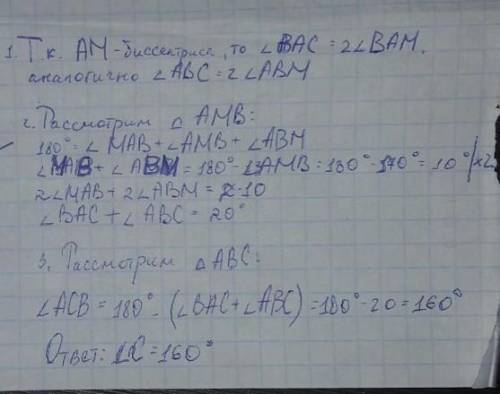 1. Т.к. АМ-биссектриса, то ∠BAC = 2∠BAM.
аналогично ∠ABC = 2∠ABM
2. Рассмотрим △ AMB:
180° = ∠MAB + ∠AMB + ∠ABM
∠MAB + ∠ABM = 180° - ∠AMB = 180° - 170° = 10° /×2
2∠MAB + 2∠ABM = 2·10
∠BAC + ∠ABC = 20°
3. Рассмотрим △ABC:
∠ACB = 180° - (∠BAC + ∠ABC) = 180° - 20 = 160°
Ответ: ∠C = 160°